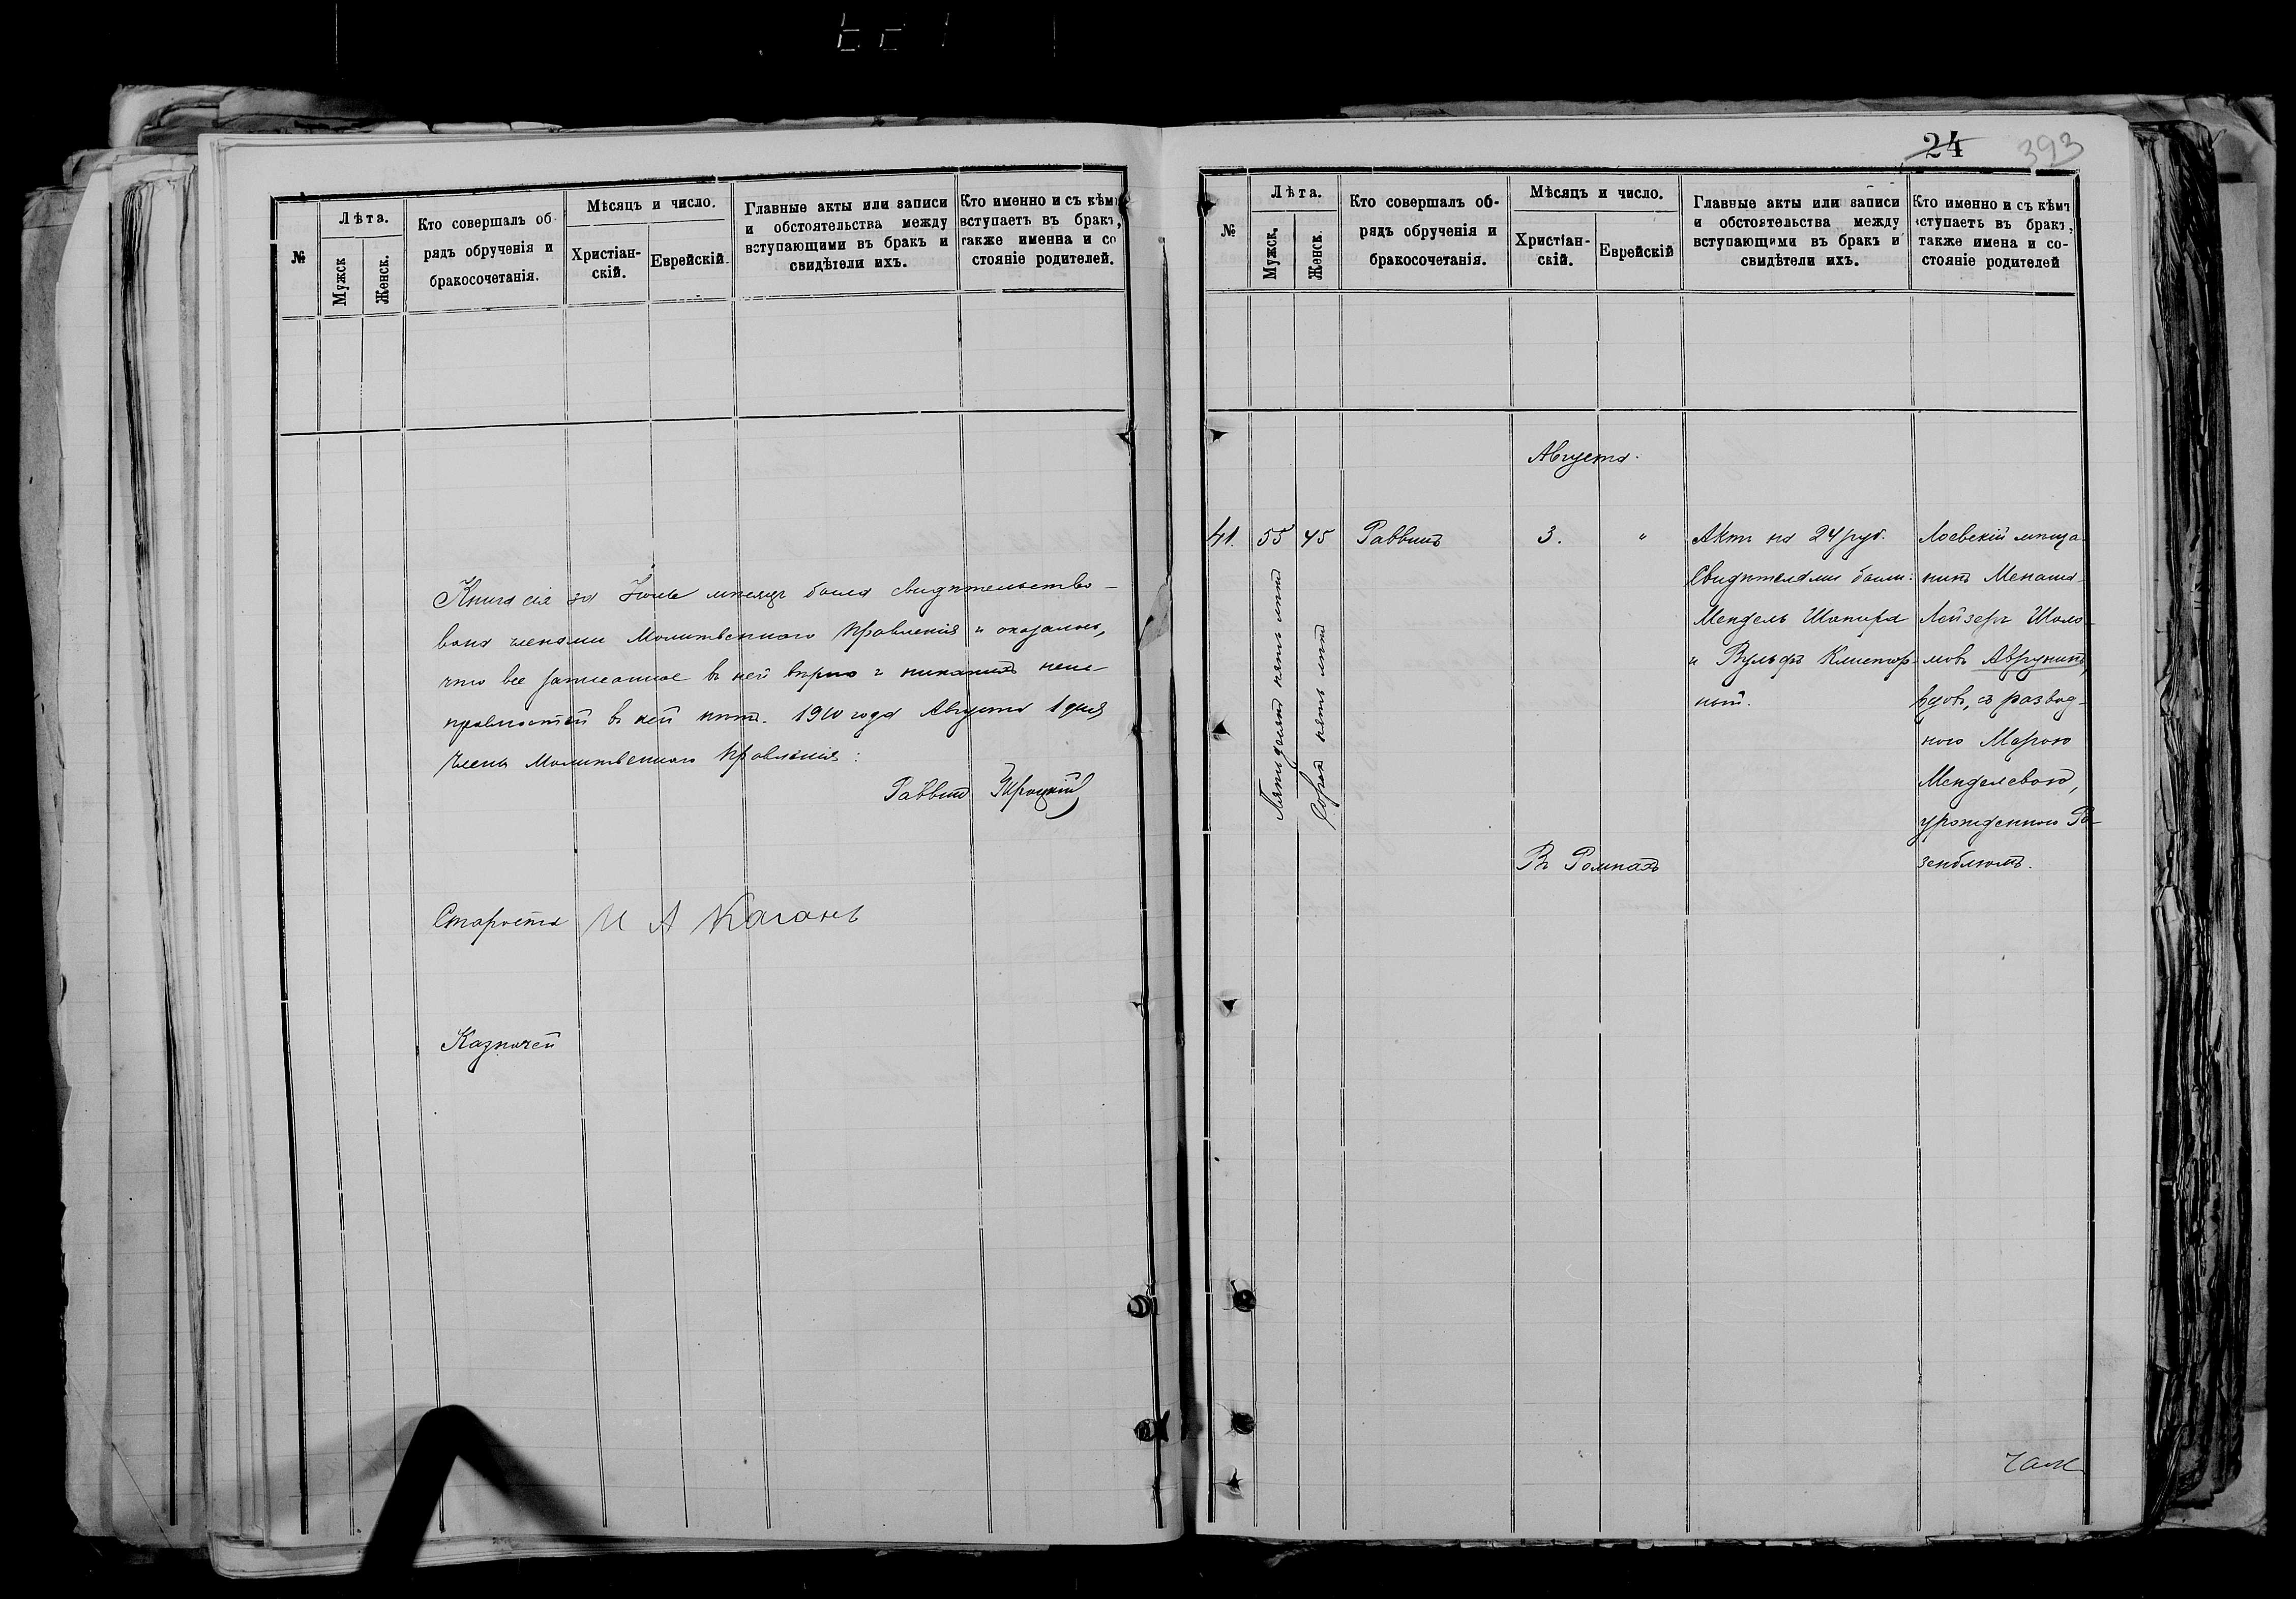 №
Лѣта.
Мужск
Женск.
Кто совершалъ об-
рядъ обрученія и
бракосочетанія.
Мѣсяцъ и число.
Христіан-
скій.
Еврейскій.
Главные акты или записи
и обстоятельства между
вступающими въ бракъ и
свидѣтели ихъ.
Кто именно и съ кѣмъ
вступаетъ въ бракъ,
также именна и со
стояніе родителей.
Книга сія за Іюль мѣсяцъ была свидѣтельство-
вана членами Молитвеннаго Правленія и оказалось,
что все записанное въ ней вѣрно и никакихъ неис-
правностей въ ней нѣтъ. 1910 года Августа 1 дня
Члены Молитвеннаго Правленія:
Раввинъ
Староста И А Каганъ
Казначей
24 393
№
Лѣта.
Мужск.
Женск.
Кто совершалъ об-
рядъ обрученія и
бракосочетанія.
Мѣсяцъ и число.
Христіан-
скій.
Еврейскій
Главные акты или записи
и обстоятельства между
вступающими въ бракъ и
свидѣтели ихъ.
Кто именно и съ кѣмъ
вступаетъ въ бракъ,
также имена и со-
стояніе родителей
Августа.
41.
55
45
Пятьдесятъ пять лѣтъ
Сорок пять лѣтъ
Раввинъ
3.
"
Въ Ромнахъ
Актъ на 24 руб.
Свидѣтелями были:
Мендель Шапира
и Вульфъ Клистор-
ный.
Лоевскій мѣща
нинъ Менаша-
Лейзеръ Шоло-
мовъ Аврунинъ,
вдов, съ развод-
ною Марою
Менделевою,
урожденною Ро-
зенблюмъ.